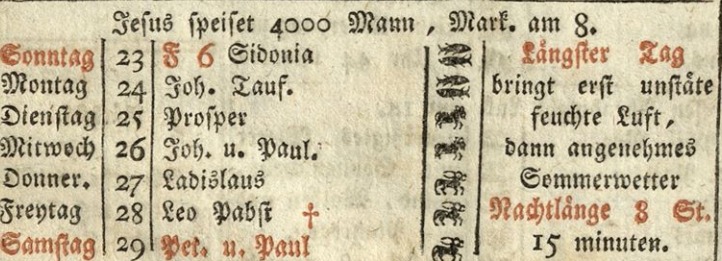 Jesus speiset 4000 Mann, Mark. am 8.
Sonntag 23 F 6 Sidonia Längster Tag
Montag 24 Joh. Tauf. bringt erst unstäte
Dienstag 25 Prosper feuchte Luft,
Mitwoch 26 Joh. u. Paul. dann angenehmes
Donner. 27 Ladislaus Sommerwetter
Freytag 28 Leo Pabst † Nachtlänge 8 St.
Samstag 29 Pet. u. Paul 15 minuten.